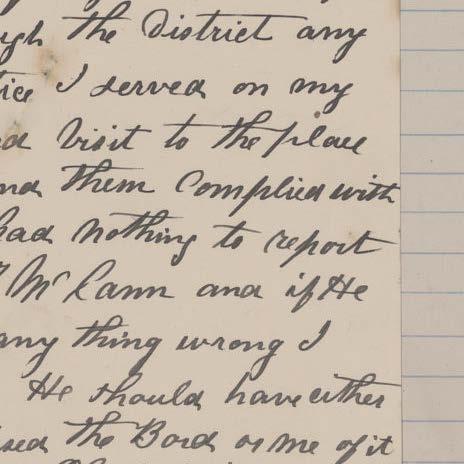 the District any
I served on my
Visit to the place
them Complied with
had nothing to report
McCann and if He
any thing wrong I
He should have either
the Bord or me of it